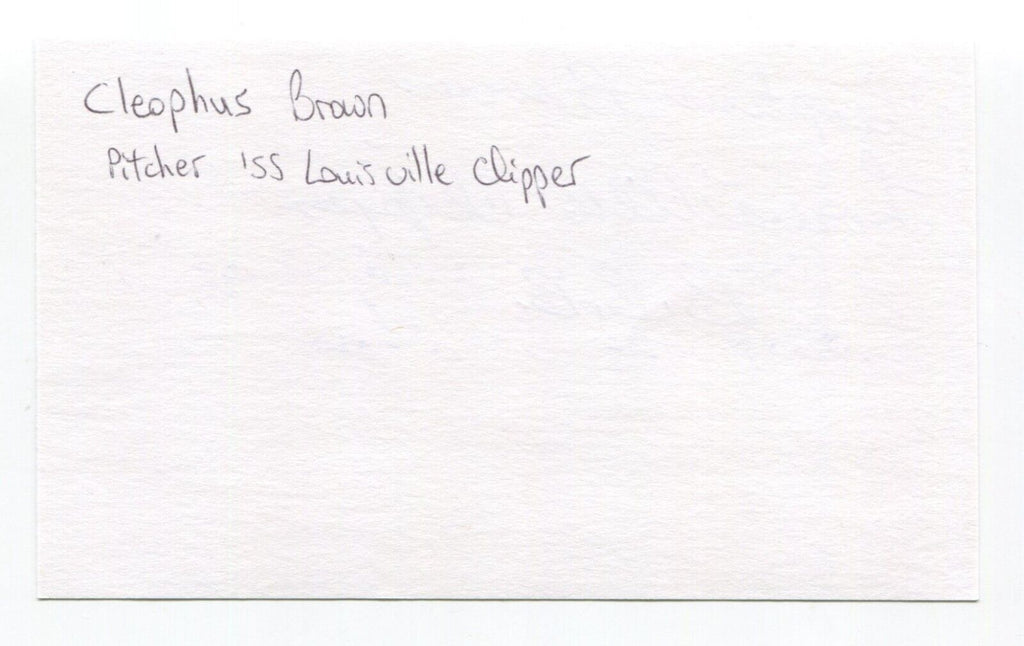 Cleophus Brown
Pitcher '55 Louisville Clipper